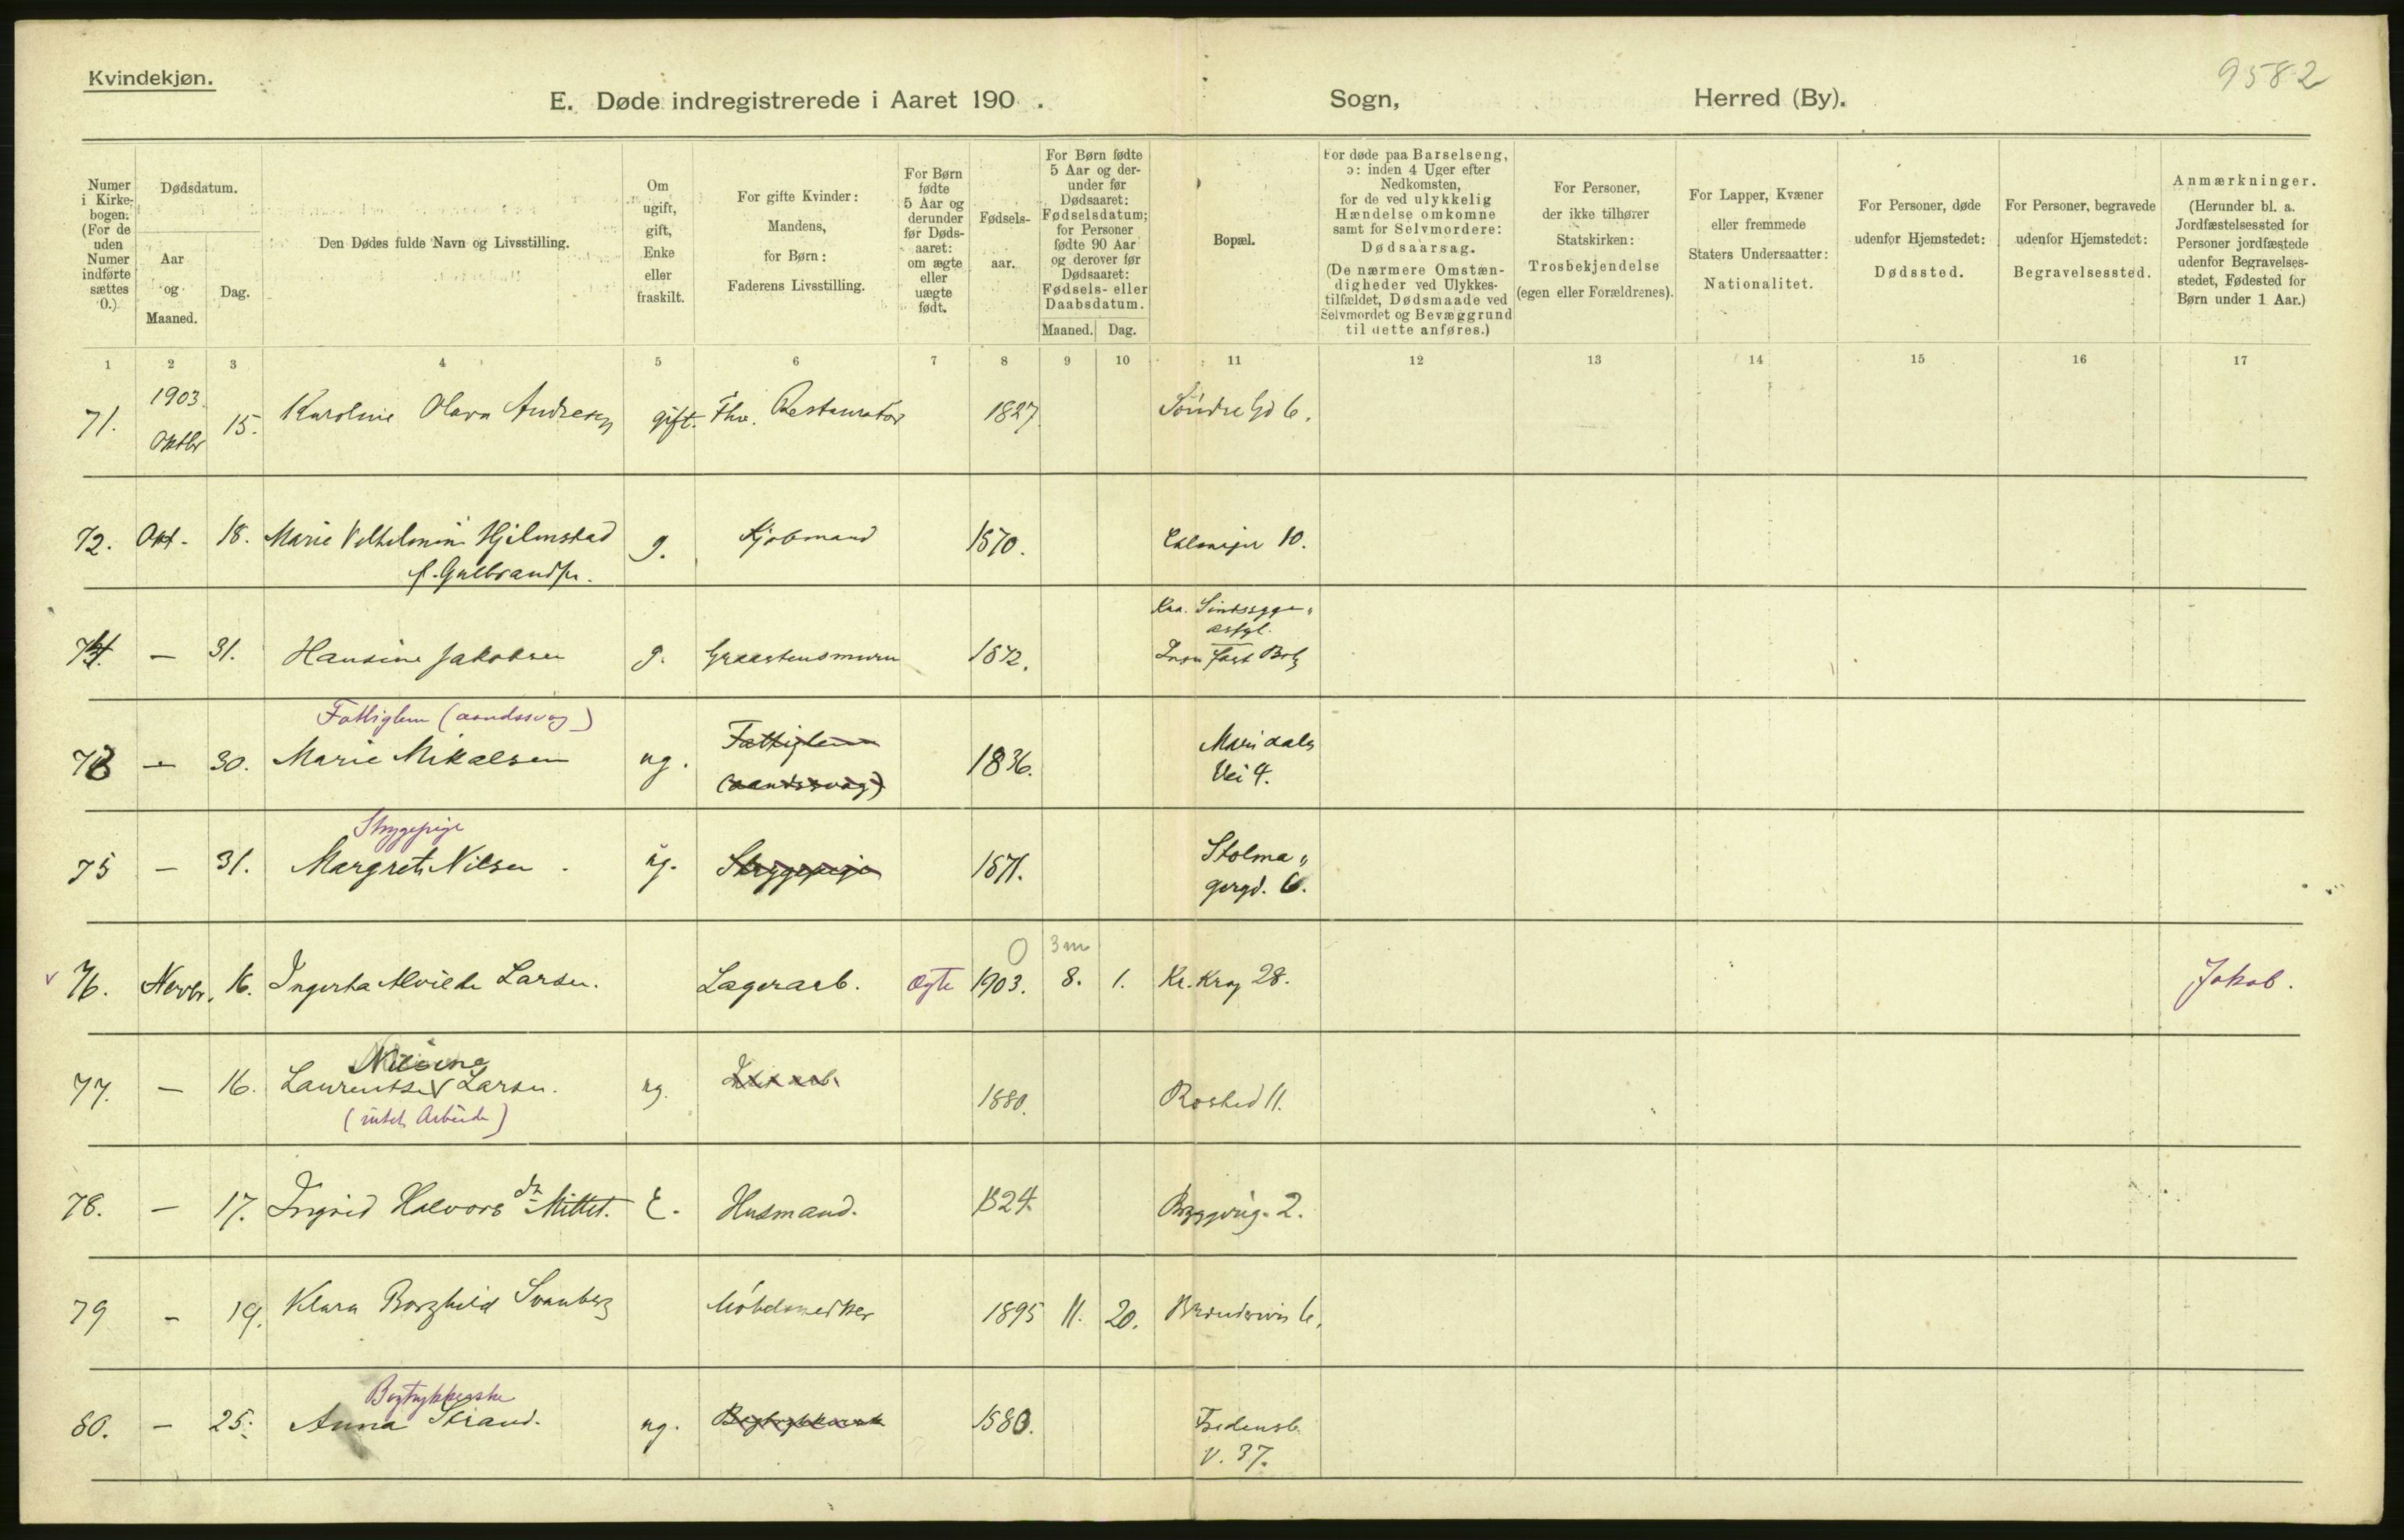 Kvindekjøn.
9582
E. Døde indregistrerede i Aaret 190 . Sogn, Herred (By).
Numer i Kirkebogen. (For de uden Numer indførte sættes 0.)
Dødsdatum.
Aar og Maaned.
Dag.
Den Dødes fulde Navn og Livsstilling.
Om ugift, gift, Enke eller fraskilt.
For gifte Kvinder: Mandens, for Børn: Faderens Livsstilling.
For Børn fødte 5 Aar og derunder før Dødsaaret: om ægte eller uægte født.
Fødselsaar.
For Børn fødte 5 Aar og derunder før Dødsaaret: Fødselsdatum; for Personer fødte 90 Aar og derover før Dødsaaret: Fødsels- eller Daabsdatum.
Maaned. Dag.
Bopæl.
For døde paa Barselseng, ɔ: inden 4 Uger efter Nedkomsten, for de ved ulykkelig Hændelse omkomne samt for Selvmordere: Dødsaarsag.
(De nærmere Omstændigheder ved Ulykkestilfældet, Dødsmaade ved Selvmordet og Bevæggrund til dette anføres.)
For Personer, der ikke tilhører Statskirken: Trosbekjendelse (egen eller Forældrenes).
For Lapper, Kvæner eller fremmede Staters Undersaatter: Nationalitet.
For Personer, døde udenfor Hjemstedet: Dødssted.
For Personer, begravede udenfor Hjemstedet: Begravelsessted.
Anmærkninger. (Herunder bl. a. Jordfæstelsessted for Personer jordfæstede udenfor Begravelsesstedet, Fødested for Børn under 1 Aar.)
1 2 3 4 5 6 7 8 9 10 11 12 13 14 15 16 17
1903
71. Oktbr 15. Karoline Olava Andresen gift. Fhv. Restauratør 1827. Søndre Gd 6.
72. Okt - 18. Marie Vilhelmine Hjelmstad g. Kjøbmand 1870. 10.
f. Gulbrandsn.
Kra. Sindssygeasyl.
— 31. Hansine Jakobsen g. Graastensmurer 1872. fast Bolg
Fattiglem (aandssvag)
— 30. Marie Mikalsen ug. Fattiglem (aandssvag) 1836. Maridals Vei 4.
Strygepige
75 — 31. Margrete Nilsen. ug. Strygepige 1871. Stolmagergd. 6.
0 3 m
76. Novbr. 16. Ingerha Alvilde Larsen. Lagerarb. Ægte 1903. 8. 1. Kr. Krog 28. Jakob.
Nilsine
77. — 16. Laurentse Larsen. ug. 1880. Rosted 11.
(intet Arbeide)
78. — 17. Ingrid Halvorsdr Mittet. E. Husmand. 1824. Byggvrig. 2.
79 — 19. Klara Borghild Svanberg Møbelsnedker 1895 11. 20. 6.
Bogtrykkerske
80. — 25. Anna Strand. ug. Bogtrykkersk 1880. Fredensb. V. 37.